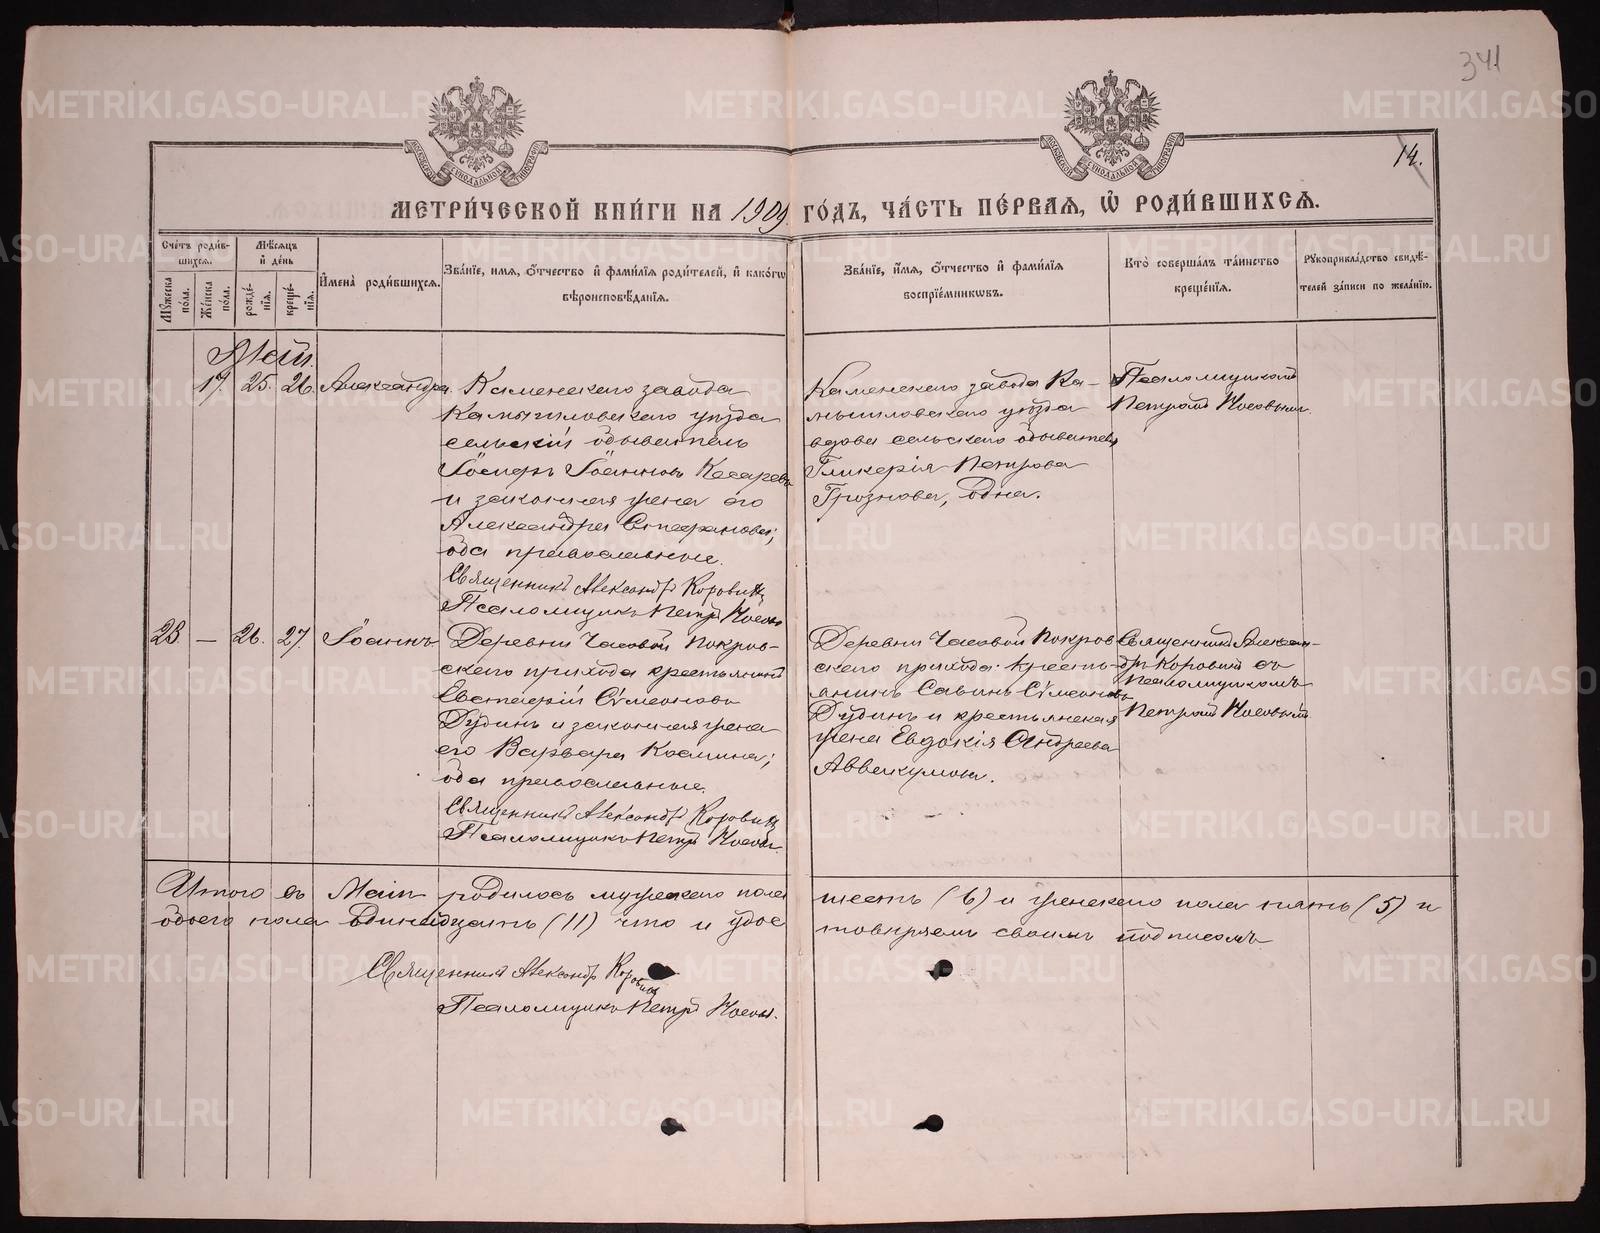 341
14.
МЕТРИ́ЧЕСКОЙ КНИ́ГИ НА 1909 ГО́ДЪ, ЧА́СТЬ ПЕ́РВАЯ, Ѡ҆ РОДИ́ВШИХСЯ.
Сче́тъ роди́в-
шихся.
Му́жеска по́ла.
Же́нска по́ла.
Мѣ́сяцъ
и҆ де́нь
рожде́-
нїя.
креще́-
нїя.
И҆мена̀ роди́вшихся.
Зва́нїе, и҆́мя, ѻ҆́тчество и҆ фами́лїя роди́телей, и҆ како́гѡ
вѣроисповѣ́данїя.
Зва́нїе, и҆́мя, ѻ҆́тчество и҆ фами́лїя
воспрїе́мникѡвъ.
Кто̀ соверша́лъ та́инство
креще́нїя.
Рꙋкоприкла́дство свидѣ́-
телей за́писи по жела́нїю.
Май.
17. 25. 26. Александра
Каменскаго завода
Камышловскаго уѣзда
сельскій обыватель
Іосифъ Іоанновъ
и законная жена его
Александра
оба православные.
Священникъ Александръ Коровинъ
Псаломщикъ Петръ Носовъ
Каменскаго завода Ка-
мышловскаго уѣзда
вдова сельскаго обывателя
Гликерія Петрова
Грознова, одна.
Псаломщикомъ
Петромъ Носовымъ.
23 — 26. 27. Іоаннъ
Деревни Часовой Покров-
скаго прихода крестьянинъ
Евстафій Сѷмеоновъ
Дудинъ и законная жена
его Варвара Космина;
оба православные.
Священникъ Александръ Коровинъ
Псаломщикъ Петръ Носовъ.
Деревни Часовой Покров
скаго прихода кресть-
янинъ Савинъ Сѷмеоновъ
Дудинъ и крестьянская
жена Евдокія Андреева
Аввакумова.
Священникъ Алексан-
дръ Коровинъ съ
псаломщикомъ
Петромъ Носовымъ
Итого въ Маѣ родилось мужескаго пола шесть (6) и женскаго пола пять (5) и
обоего пола одинадцать (11) что и удос товѣряемъ своимъ подписомъ
Священникъ Александръ Коровинъ
Псаломщикъ Петръ Носовъ.
METRIKI.GASO-URAL.RU